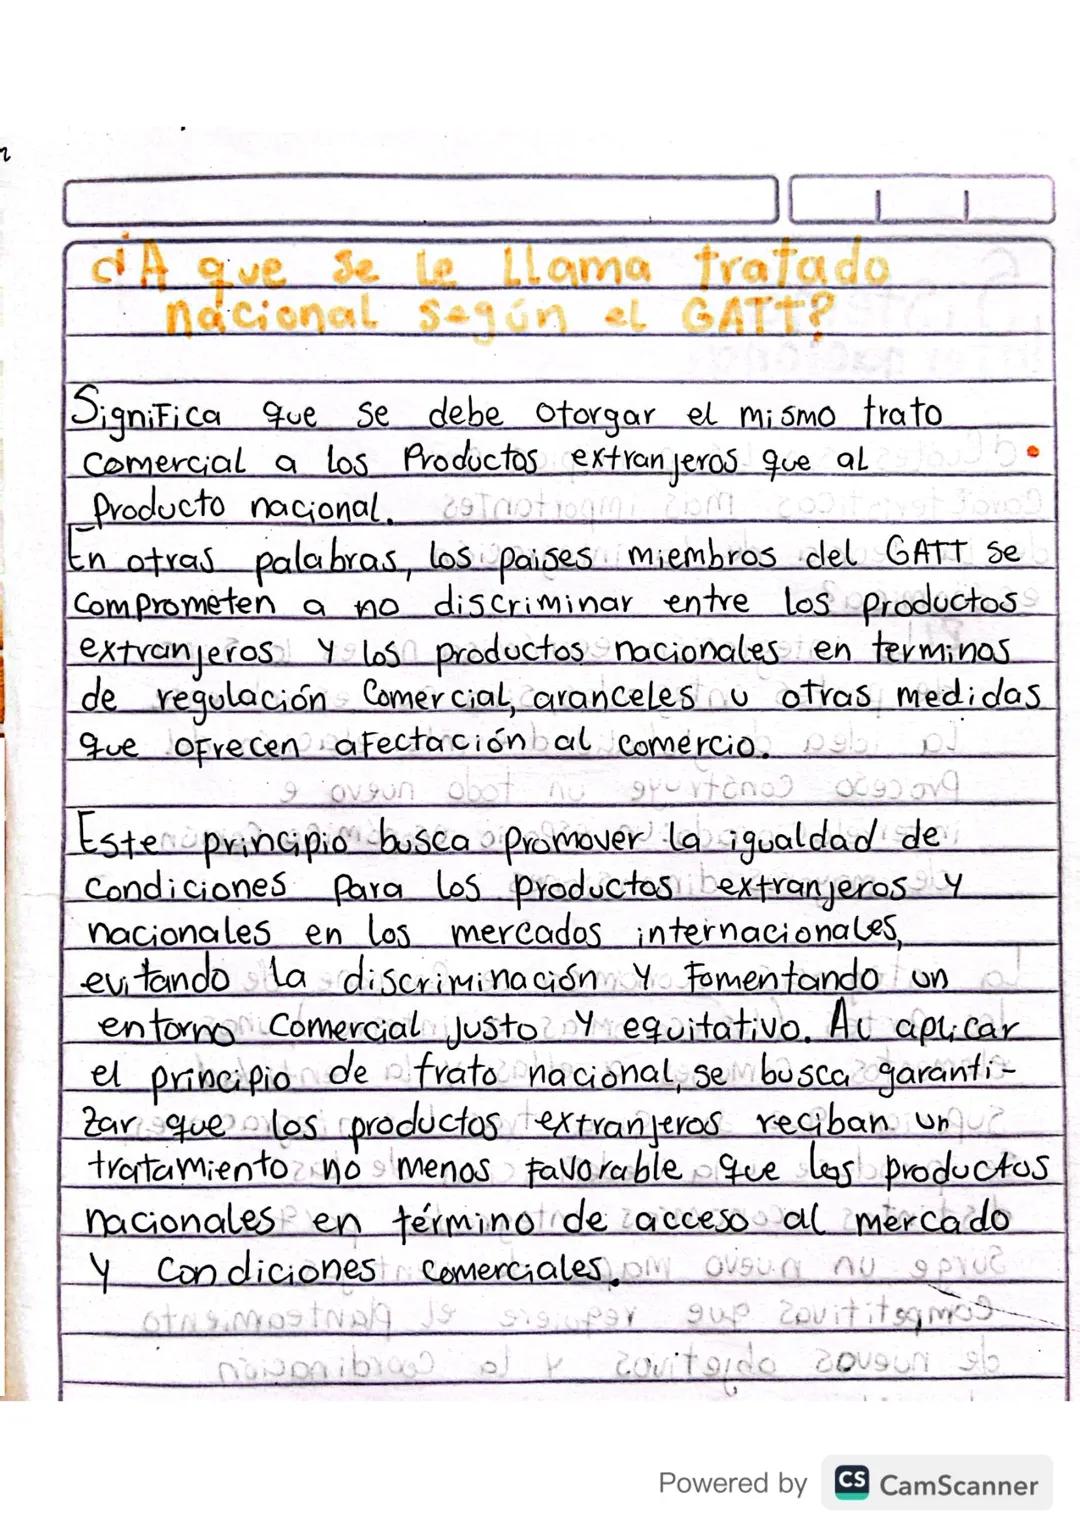 ¿A que se le llama tratado
nacional según el GATT?
Significa que se debe otorgar el mismo trato
comercial a los Productos extranjeros que al
Producto nacional.
En otras palabras, los paises miembros del GATT se
comprometen a no discriminar entre los productos
extranjeros y los productos nacionales en terminos
de regulación comercial, aranceles u otras medidas
que ofrecen afectación al comercio.
Este principio busca promover la igualdad de
condiciones para los productos extranjeros y
nacionales en los mercados internacionales,
evitando la discriminación y fomentando un
entorno comercial justo y equitativo. Al aplicar
el principio de trato nacional, se busca garanti-
zar que los productos extranjeros reciban un
tratamiento no menos favorable que los productos
nacionales en término de acceso al mercado
y condiciones comerciales.
Powered by CS CamScanner